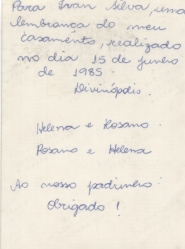 Para Ivan Silva, uma
lembrança do meu
casamento, realizado
no dia 15 de junho
de 1985.
Divinópolis.
Helena e Rosano.
Rosano e Helena
Ao nosso padrinho
obrigado!